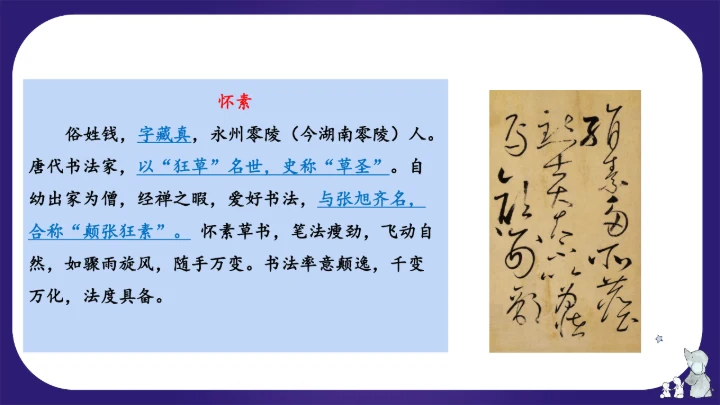 怀素
俗姓钱，字藏真，永州零陵（今湖南零陵）人。
唐代书法家，以“狂草”名世，史称“草圣”。自
幼出家为僧，经禅之暇，爱好书法，与张旭齐名，
合称“颠张狂素”。 怀素草书，笔法瘦劲，飞动自
然，如骤雨旋风，随手万变。书法率意颠逸，千变
万化，法度具备。